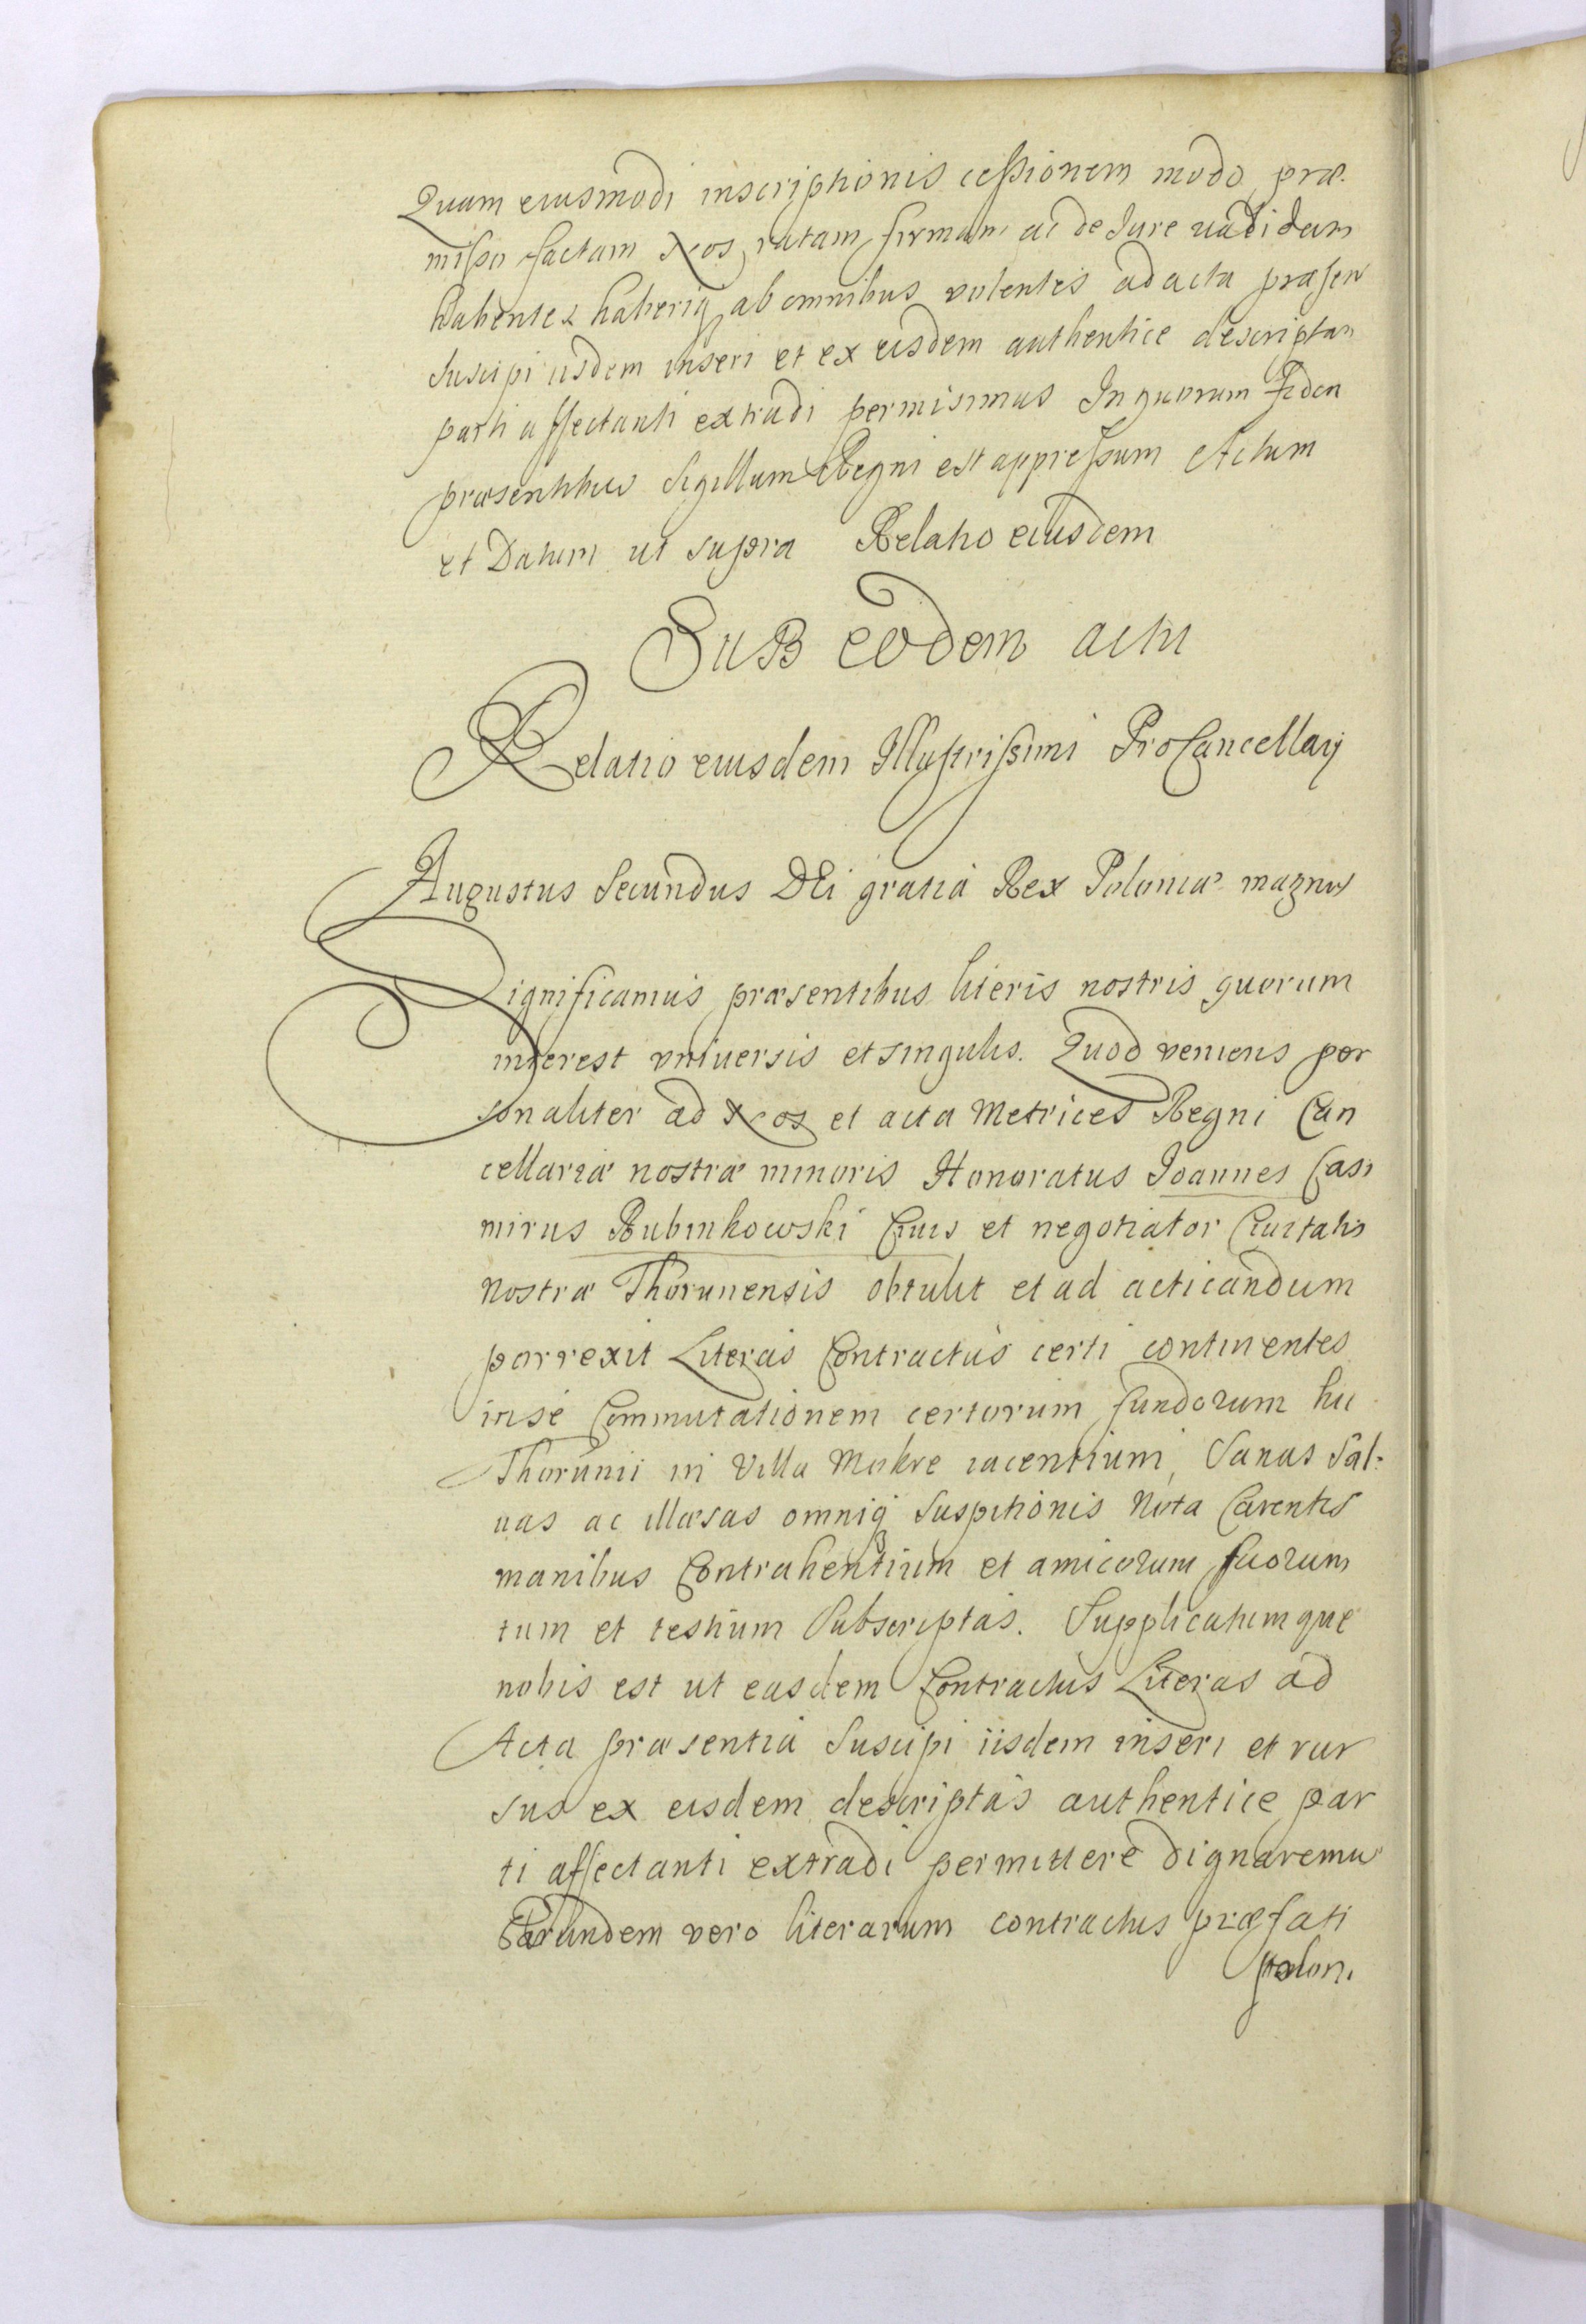 Quam eiusmodi inscriptionis cessionem modo præ-
misso factam Nos ratam firmam ac de Iure validam
habentes haberiq ab omnibus volentes ad acta præsen
suscipi iisdem inseri et ex eisdem authentice descriptam
parti affectanti extradi permisimus In quorum Fidem
præsentibus Sigillum Regni est appressum Actum
et Datum ut supra Relatio eiusdem
Sub eodem actu
Relatio eiusdem Illustrissimi ProCancellarij
Augustus Secundus DEi gratia Rex Poloniæ magnus
Significamus præsentibus literis nostris quorum
interest vniuersis et singulis. Quod veniens per
sonaliter ad Nos et acta Metrices Regni Can
cellariæ nostræ minoris Honoratus Ioannes Casi
mirus Rubinkowski Ciuis et negotiator Ciuitatis
Nostræ Thorunensis obtulit et ad acticandum
porrexit Literas Contractus certi continentes
in se Commutationem certorum fundorum hic
Thorunii in Villa Mokre iacentium, Sanas Sal-
uas ac illæsas omniq Suspitionis Nota Carentes
manibus Contrahentium et amicorum suorum
tum et testium Subscriptas. Supplicatumque
nobis est ut easdem Contractus Literas ad
Acta præsentia Suscipi iisdem inseri et rur
sus ex eisdem descriptas authentice par
ti affectanti extradi permittere dignaremur
Earundem vero literarum contractus præfati